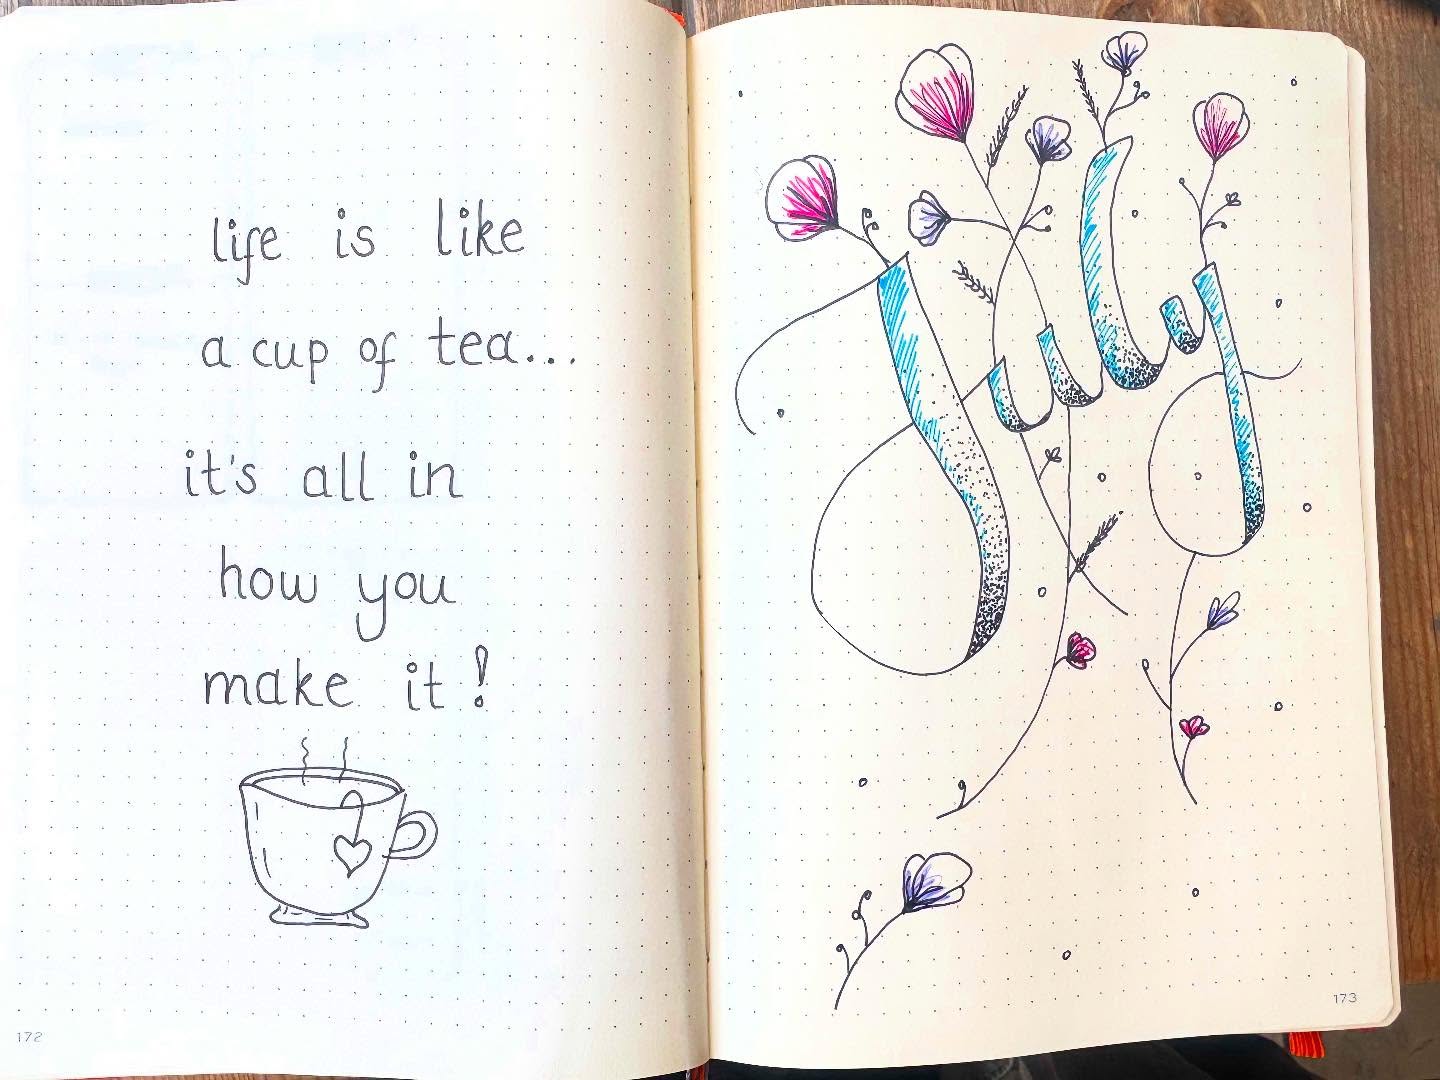 life is like
a cup of tea...
it's all in
how you
make it!
172
July
173